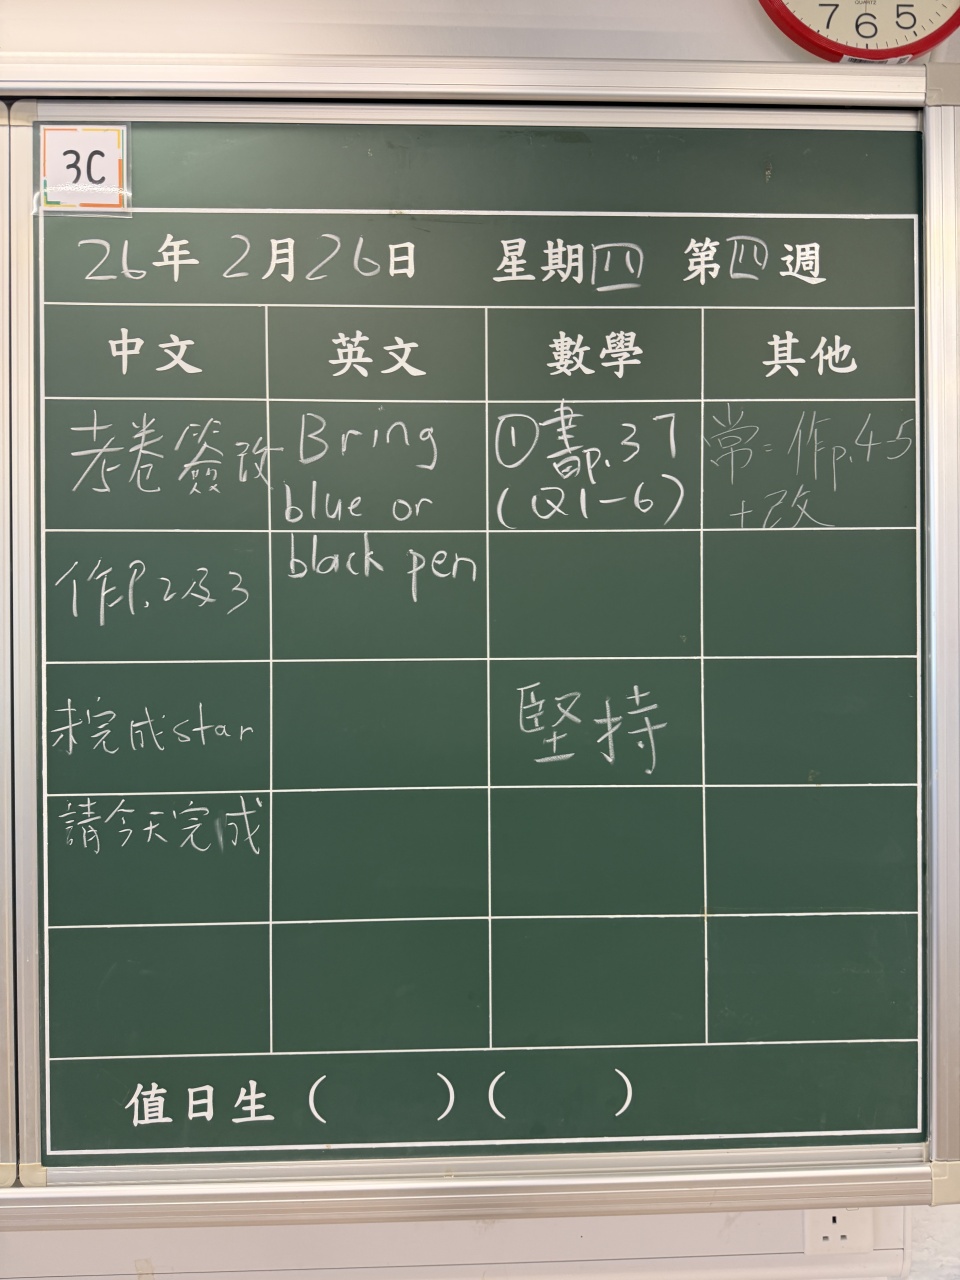 QUARTZ
7 6 5
3C
26年2月26日 星期四 第四週
中文 英文 數學 其他
考卷簽改
Bring
blue or
black pen
①書p.37
(Q1-6)
常=作p.45
+改
作P.2及3
未完成star
堅持
請今天完成
值日生 ( ) ( )